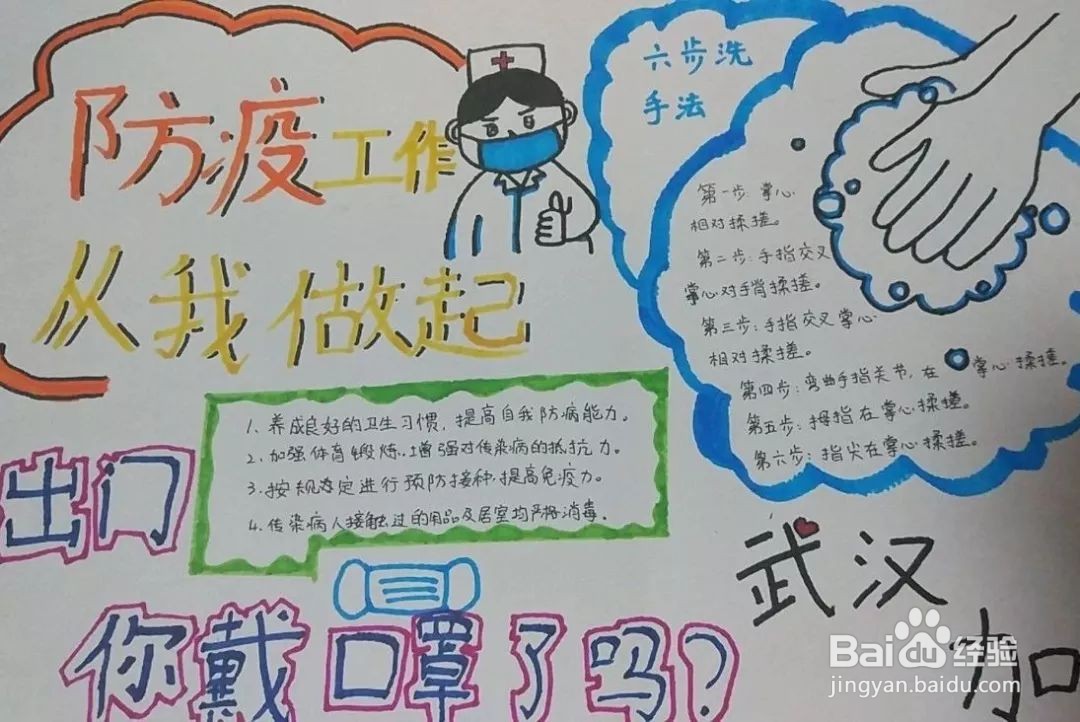 防疫工作
从我做起
六步洗
手法
第一步:掌心
相对揉搓。
第二步:手指交叉
掌心对手背揉搓。
第三步:手指交叉掌心
相对揉搓。
第四步:弯曲手指关节,在掌心揉搓。
第五步:拇指在掌心揉搓。
第六步:指尖在掌心揉搓。
1. 养成良好的卫生习惯,提高自我防病能力。
2. 加强体育锻炼,增强对传染病的抵抗力。
3. 按规定进行预防接种,提高免疫力。
4. 传染病人接触过的用品及居室均严格消毒。
出门
你戴口罩了吗?
武汉
加
Baidu经验
jingyan.baidu.com